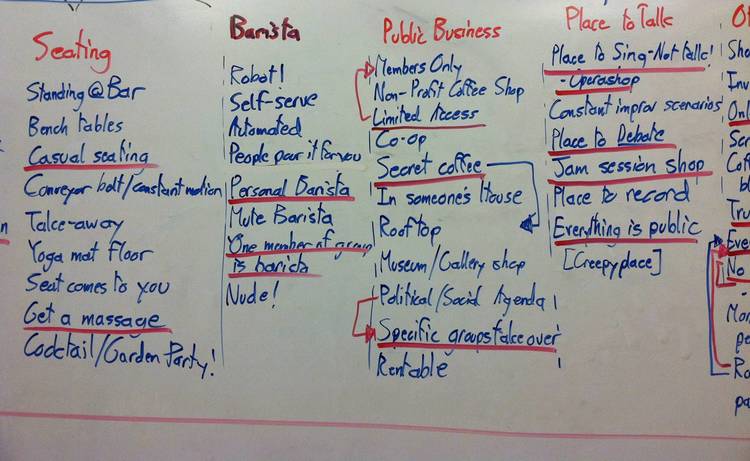 Seating
Standing @ Bar
Bench tables
Casual seating
Conveyor bolt/constant motion
Take-away
Yoga mat floor
Seat comes to you
Get a massage
Cocktail/Garden Party!
Barista
Robot!
Self-serve
Automated
People pour it for you
Personal Barista
Mute Barista
One member of group
is barista
Nude!
Public Business
Members Only
Non-Profit Coffee Shop
Limited Access
Co-op
Secret coffee
In someone's House
Rooftop
Museum/Gallery shop
Political/Social Agenda
Specific groups take over
Rentable
Place to Talk
Place to Sing-Not talk!
-Operashop
Constant improv scenarios
Place to Debate
Jam session shop
Place to record
Everything is public
[Creepy place]
No